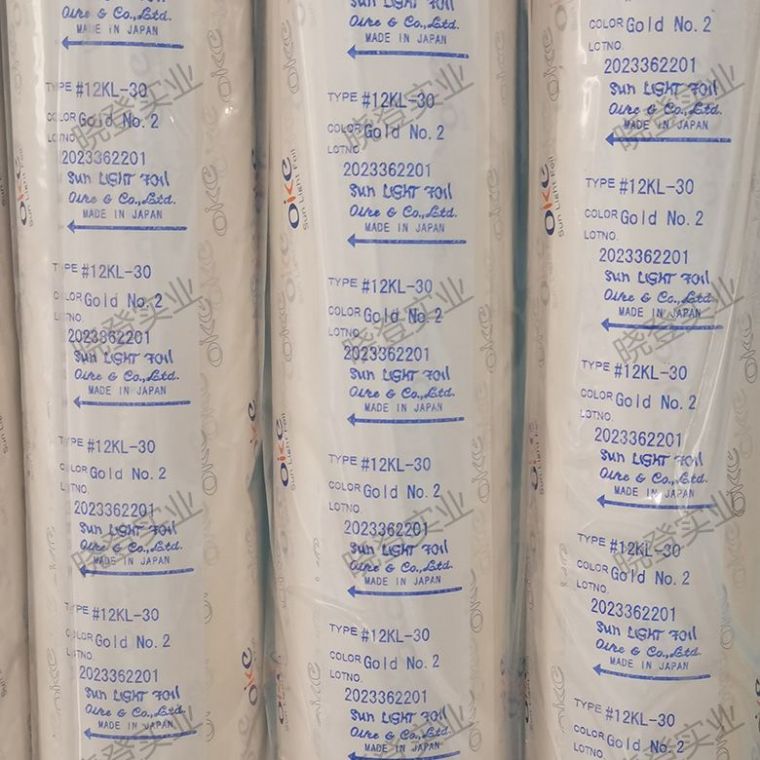 Oike & Co.,Ltd.
MADE IN JAPAN
TYPE #12KL-30
COLOR Gold No. 2
LOTNO.
2023362201
Sun LIGHT Foil
Oike & Co.,Ltd.
MADE IN JAPAN
TYPE #12KL-30
COLOR Gold No. 2
LOTNO.
2023362201
Sun LIGHT Foil
Oike & Co.,Ltd.
MADE IN JAPAN
TYPE #12KL-30
COLOR Gold No. 2
LOTNO.
2023362201
Sun LIGHT Foil
Oike & Co.,Ltd.
MADE IN JAPAN
TYPE #12KL-30
COLOR Gold No. 2
LOTNO.
2023362201
Sun LIGHT Foil
Oike & Co.,Ltd.
MADE IN JAPAN
Sun LIGHT Foil
Oike & Co.,Ltd.
MADE IN JAPAN
TYPE #12KL-30
COLOR Gold No. 2
LOTNO.
2023362201
Sun LIGHT Foil
Oike & Co.,Ltd.
MADE IN JAPAN
TYPE #12KL-30
COLOR Gold No. 2
LOTNO.
2023362201
Sun LIGHT Foil
Oike & Co.,Ltd.
MADE IN JAPAN
TYPE #12KL-30
COLOR Gold No. 2
LOTNO.
2023362201
Sun LIGHT Foil
Oike & Co.,Ltd.
MADE IN JAPAN
TYPE #12KL-30
COLOR Gold No. 2
LOTNO.
2023362201
Sun LIGHT Foil
Oike & Co.,Ltd.
MADE IN JAPAN
COLOR Gold No. 2
LOTNO.
2023362201
Sun LIGHT Foil
Oike & Co.,Ltd.
MADE IN JAPAN
TYPE #12KL-30
COLOR Gold No. 2
LOTNO.
2023362201
Sun LIGHT Foil
Oike & Co.,Ltd.
MADE IN JAPAN
TYPE #12KL-30
COLOR Gold No. 2
LOTNO.
2023362201
Sun LIGHT Foil
Oike & Co.,Ltd.
MADE IN JAPAN
TYPE #12KL-30
COLOR Gold No. 2
LOTNO.
2023362201
Sun LIGHT Foil
Oike & Co.,Ltd.
MADE IN JAPAN
TYPE #12KL-30
COLOR Gold No. 2
LOTNO.
Oike
Sun Light Foil
Oike
Sun Light Foil
Oike
Sun Light Foil
晓登实业
晓登实业
晓登实业
晓登实业
晓登实业
晓登实业
晓登实业
晓登实业
晓登实业
晓登实业
晓登实业
晓登实业